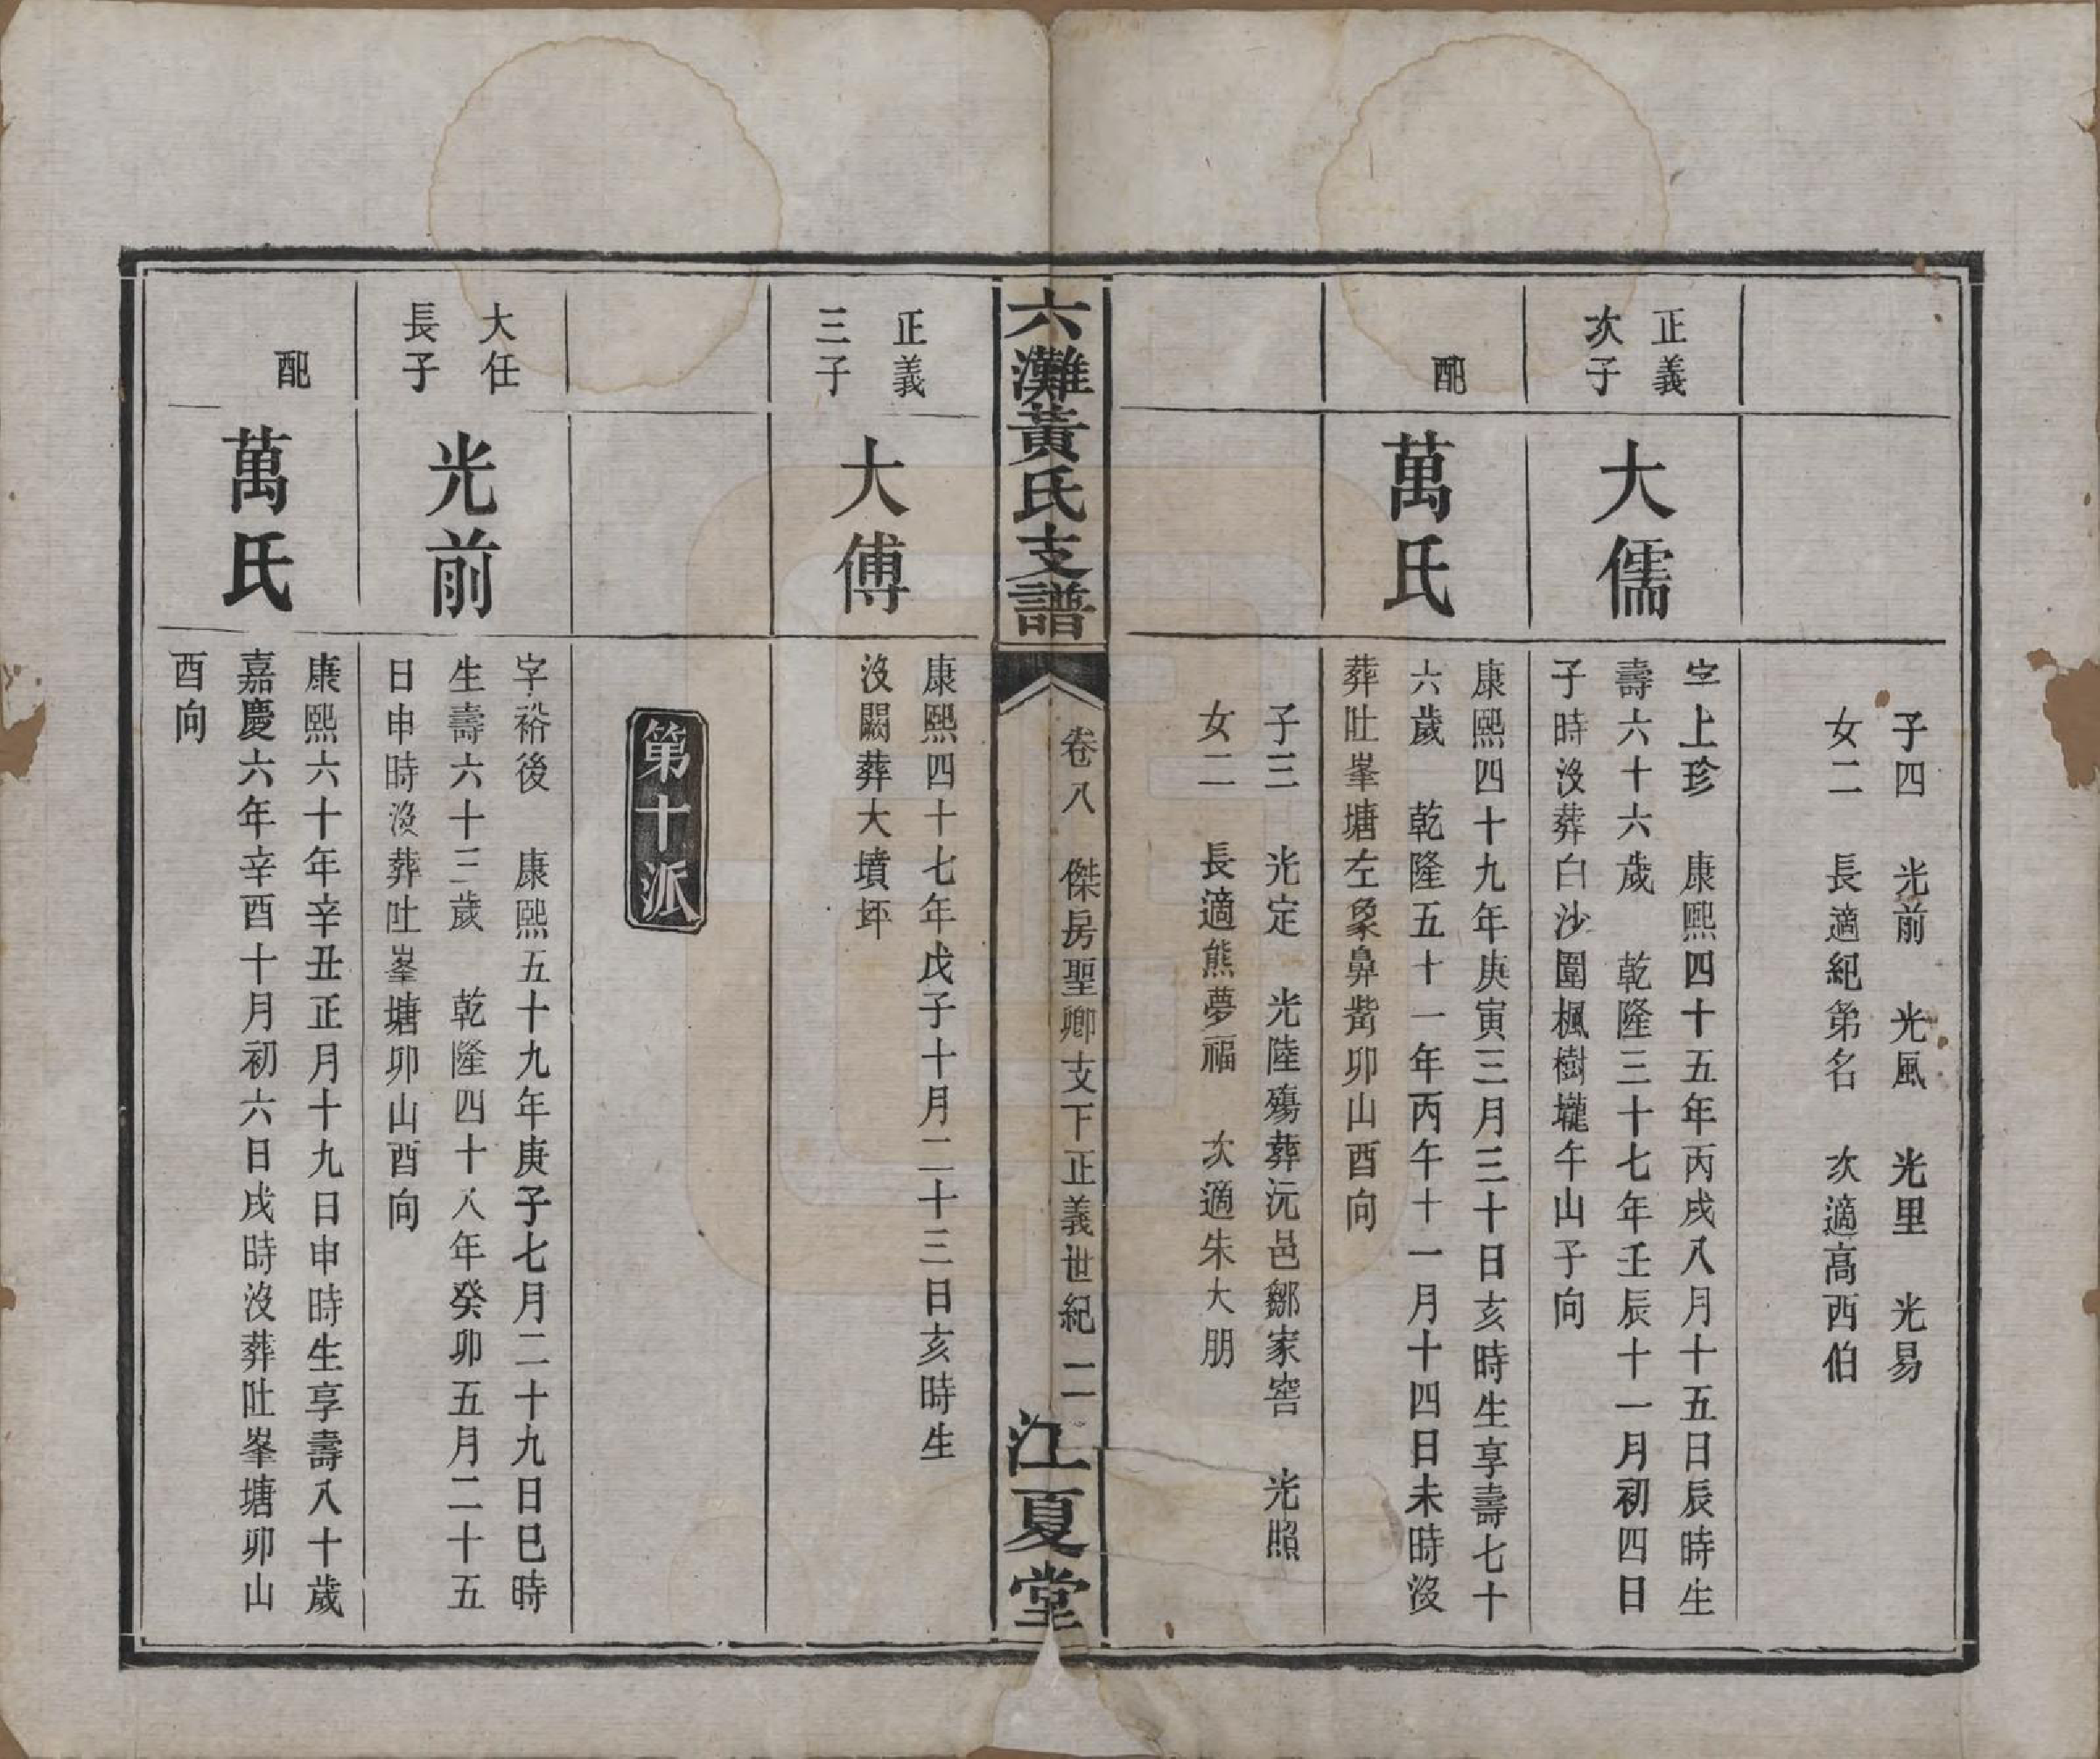 子四　光前　光風　光里　光易
女二　長適紀第名　次適高西伯
正義
次子
大儒
字上珍　康熙四十五年丙戌八月十五日辰時生
壽六十六歲　乾隆三十七年壬辰十一月初四日
子時沒葬白沙圍楓樹壠午山子向
配
萬氏
康熙四十九年庚寅三月三十日亥時生享壽七十
六歲　乾隆五十一年丙午十一月十四日未時沒
葬吐峯塘左象鼻觜卯山酉向
子三　光定　光陸殤葬沅邑鄒家窖　光照
女二　長適熊夢福　次適朱大朋
六灘黃氏支譜
卷八　傑房聖卿支下正義世紀　二
江夏堂
正義
三子
大傅
康熙四十七年戊子十月二十三日亥時生
沒闕葬大墳坪
第十派
大任
長子
光前
字裕後　康熙五十九年庚子七月二十九日巳時
生壽六十三歲　乾隆四十八年癸卯五月二十五
日申時沒葬吐峯塘卯山酉向
配
萬氏
康熙六十年辛丑正月十九日申時生享壽八十歲
嘉慶六年辛酉十月初六日戌時沒葬吐峯塘卯山
酉向